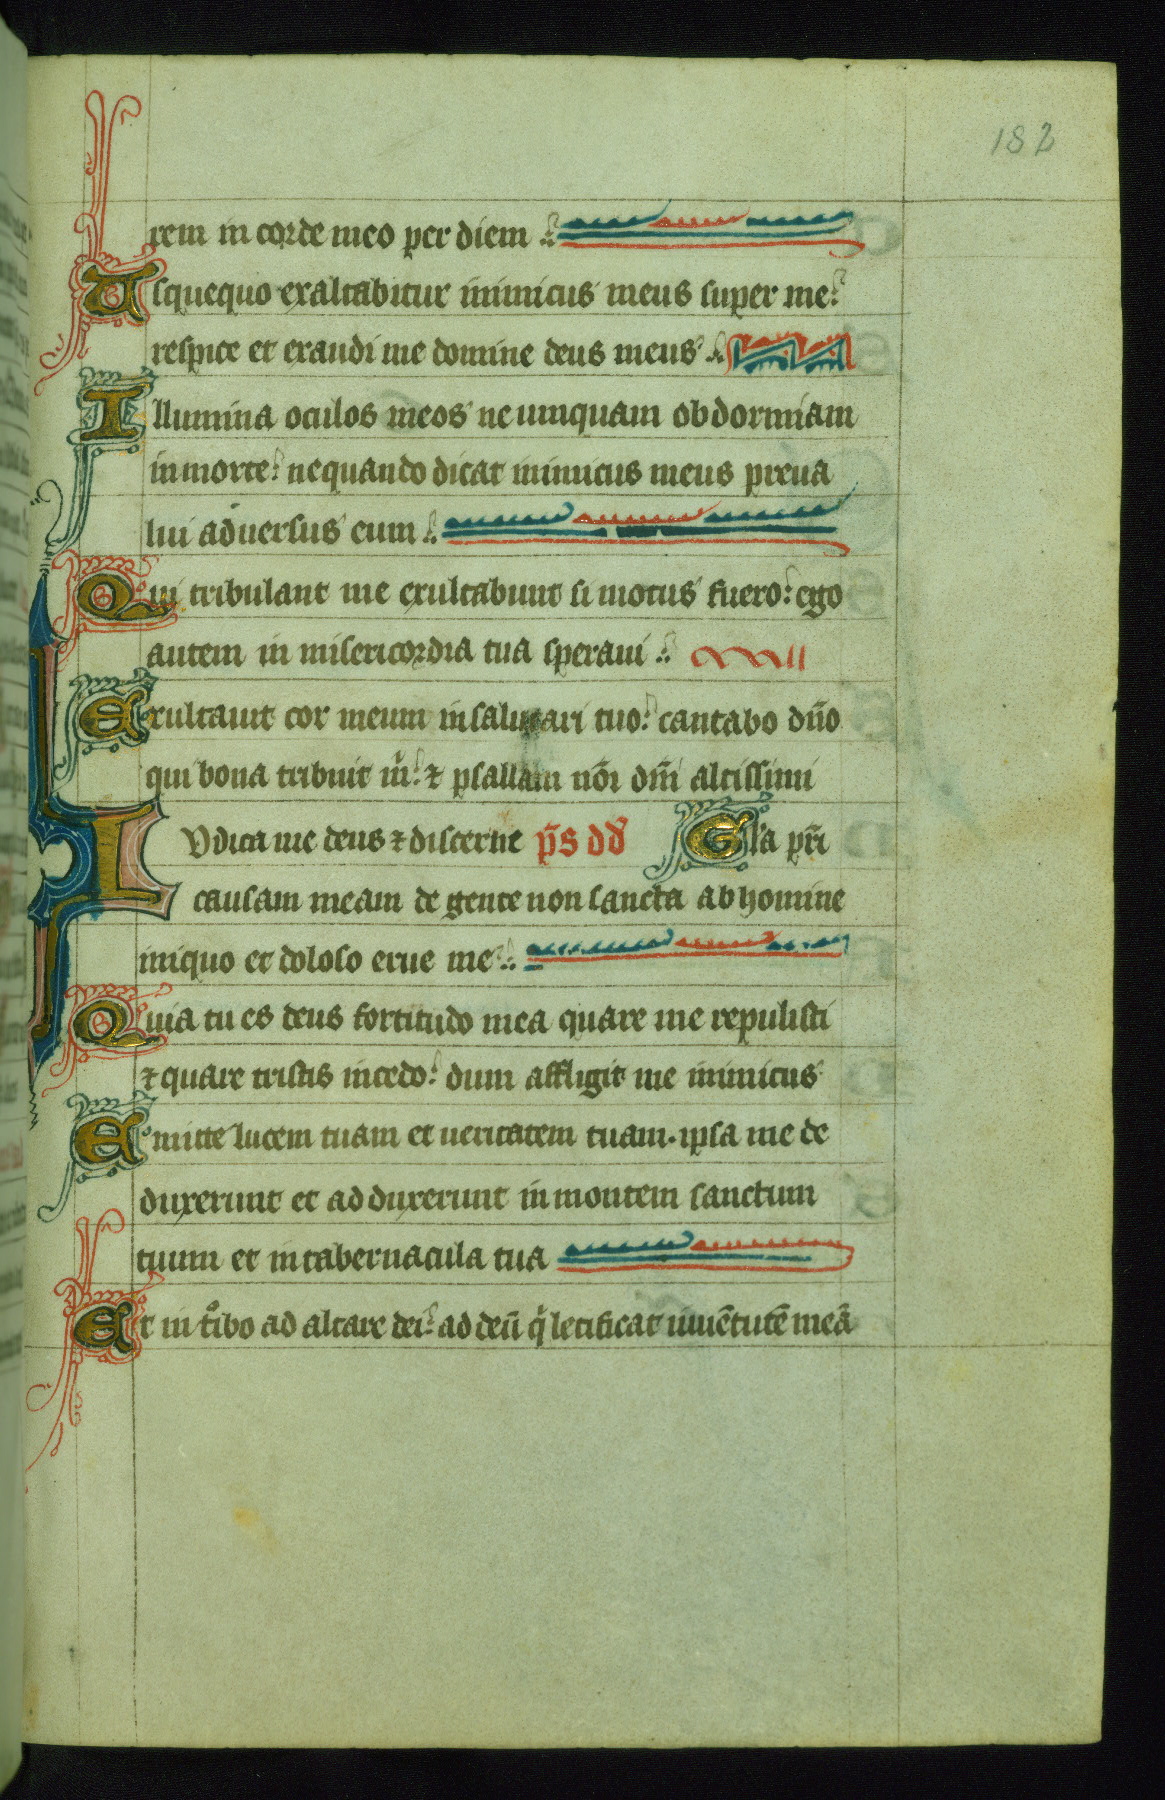 182
rem in corde meo per diem
Usquequo exaltabitur inimicus meus super me:
respice et exaudi me domine deus meus
Illumina oculos meos ne umquam obdormiam
in morte: nequando dicat inimicus meus preua
lui aduersus eum
Qui tribulant me exultabunt si motus fuero: ego
autem in misericordia tua speraui
Exultauit cor meum in salutari tuo: cantabo dño
qui bona tribuit m̃: ⁊ psallam nõi dñi altissimi
Iudica me deus ⁊ discerne p̃s dd Gl̃a pr̃i
causam meam de gente non sancta ab homine
iniquo et doloso erue me
Quia tu es deus fortitudo mea quare me repulisti
⁊ quare tristis incedo: dum affligit me inimicus
Emitte lucem tuam et ueritatem tuam. ipsa me de
duxerunt et adduxerunt in montem sanctum
tuum et in tabernacula tua
Et intͦibo ad altare dei: ad deū qͥ letificat iuuētutē meā